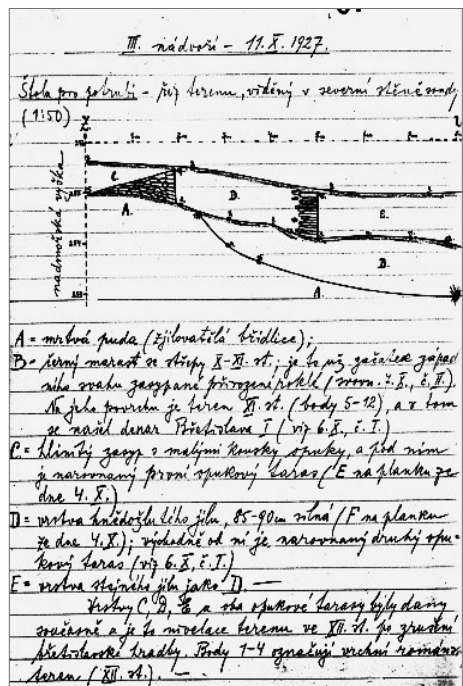 III. nádvoří - 11. X. 1927.
Štola pro potrubí - řez terenu, viděný v severní stěně sondy
(1:50)
nadmořská výška
C. D. E.
A. B.
A.
A = mrtvá půda (zjílovatělá břidlice);
B = černý marast se střepy X-XI. st.; je to už začátek západ
ního svahu zasypané přirozené rokle (srovn. č. X., č. II.).
Na jeho povrchu je teren XI. st. (body 5-12), a v tom
se našel denar Břetislava I (viz 6. X., č. I.)
C = hlinitý zásyp s malými kousky opuky, a pod ním
je narovnaný první opukový taras (E na plánku ze
dne 4. X.)
D = vrstva hnědožlutého jílu, 85-90cm silná (F na plánku
ze dne 4. X.); východně od ní je narovnaný druhý opu-
kový taras (viz 6. X., č. I.)
E = vrstva stejného jílu jako D. —
Vrstvy C, D, E a oba opukové tarasy byly dány
současně a je to nivelace terenu ve XII. st. po zrušení
břetislavské hradby. Body 1-4 označují vrchní románs.
teren (XII. st.). —